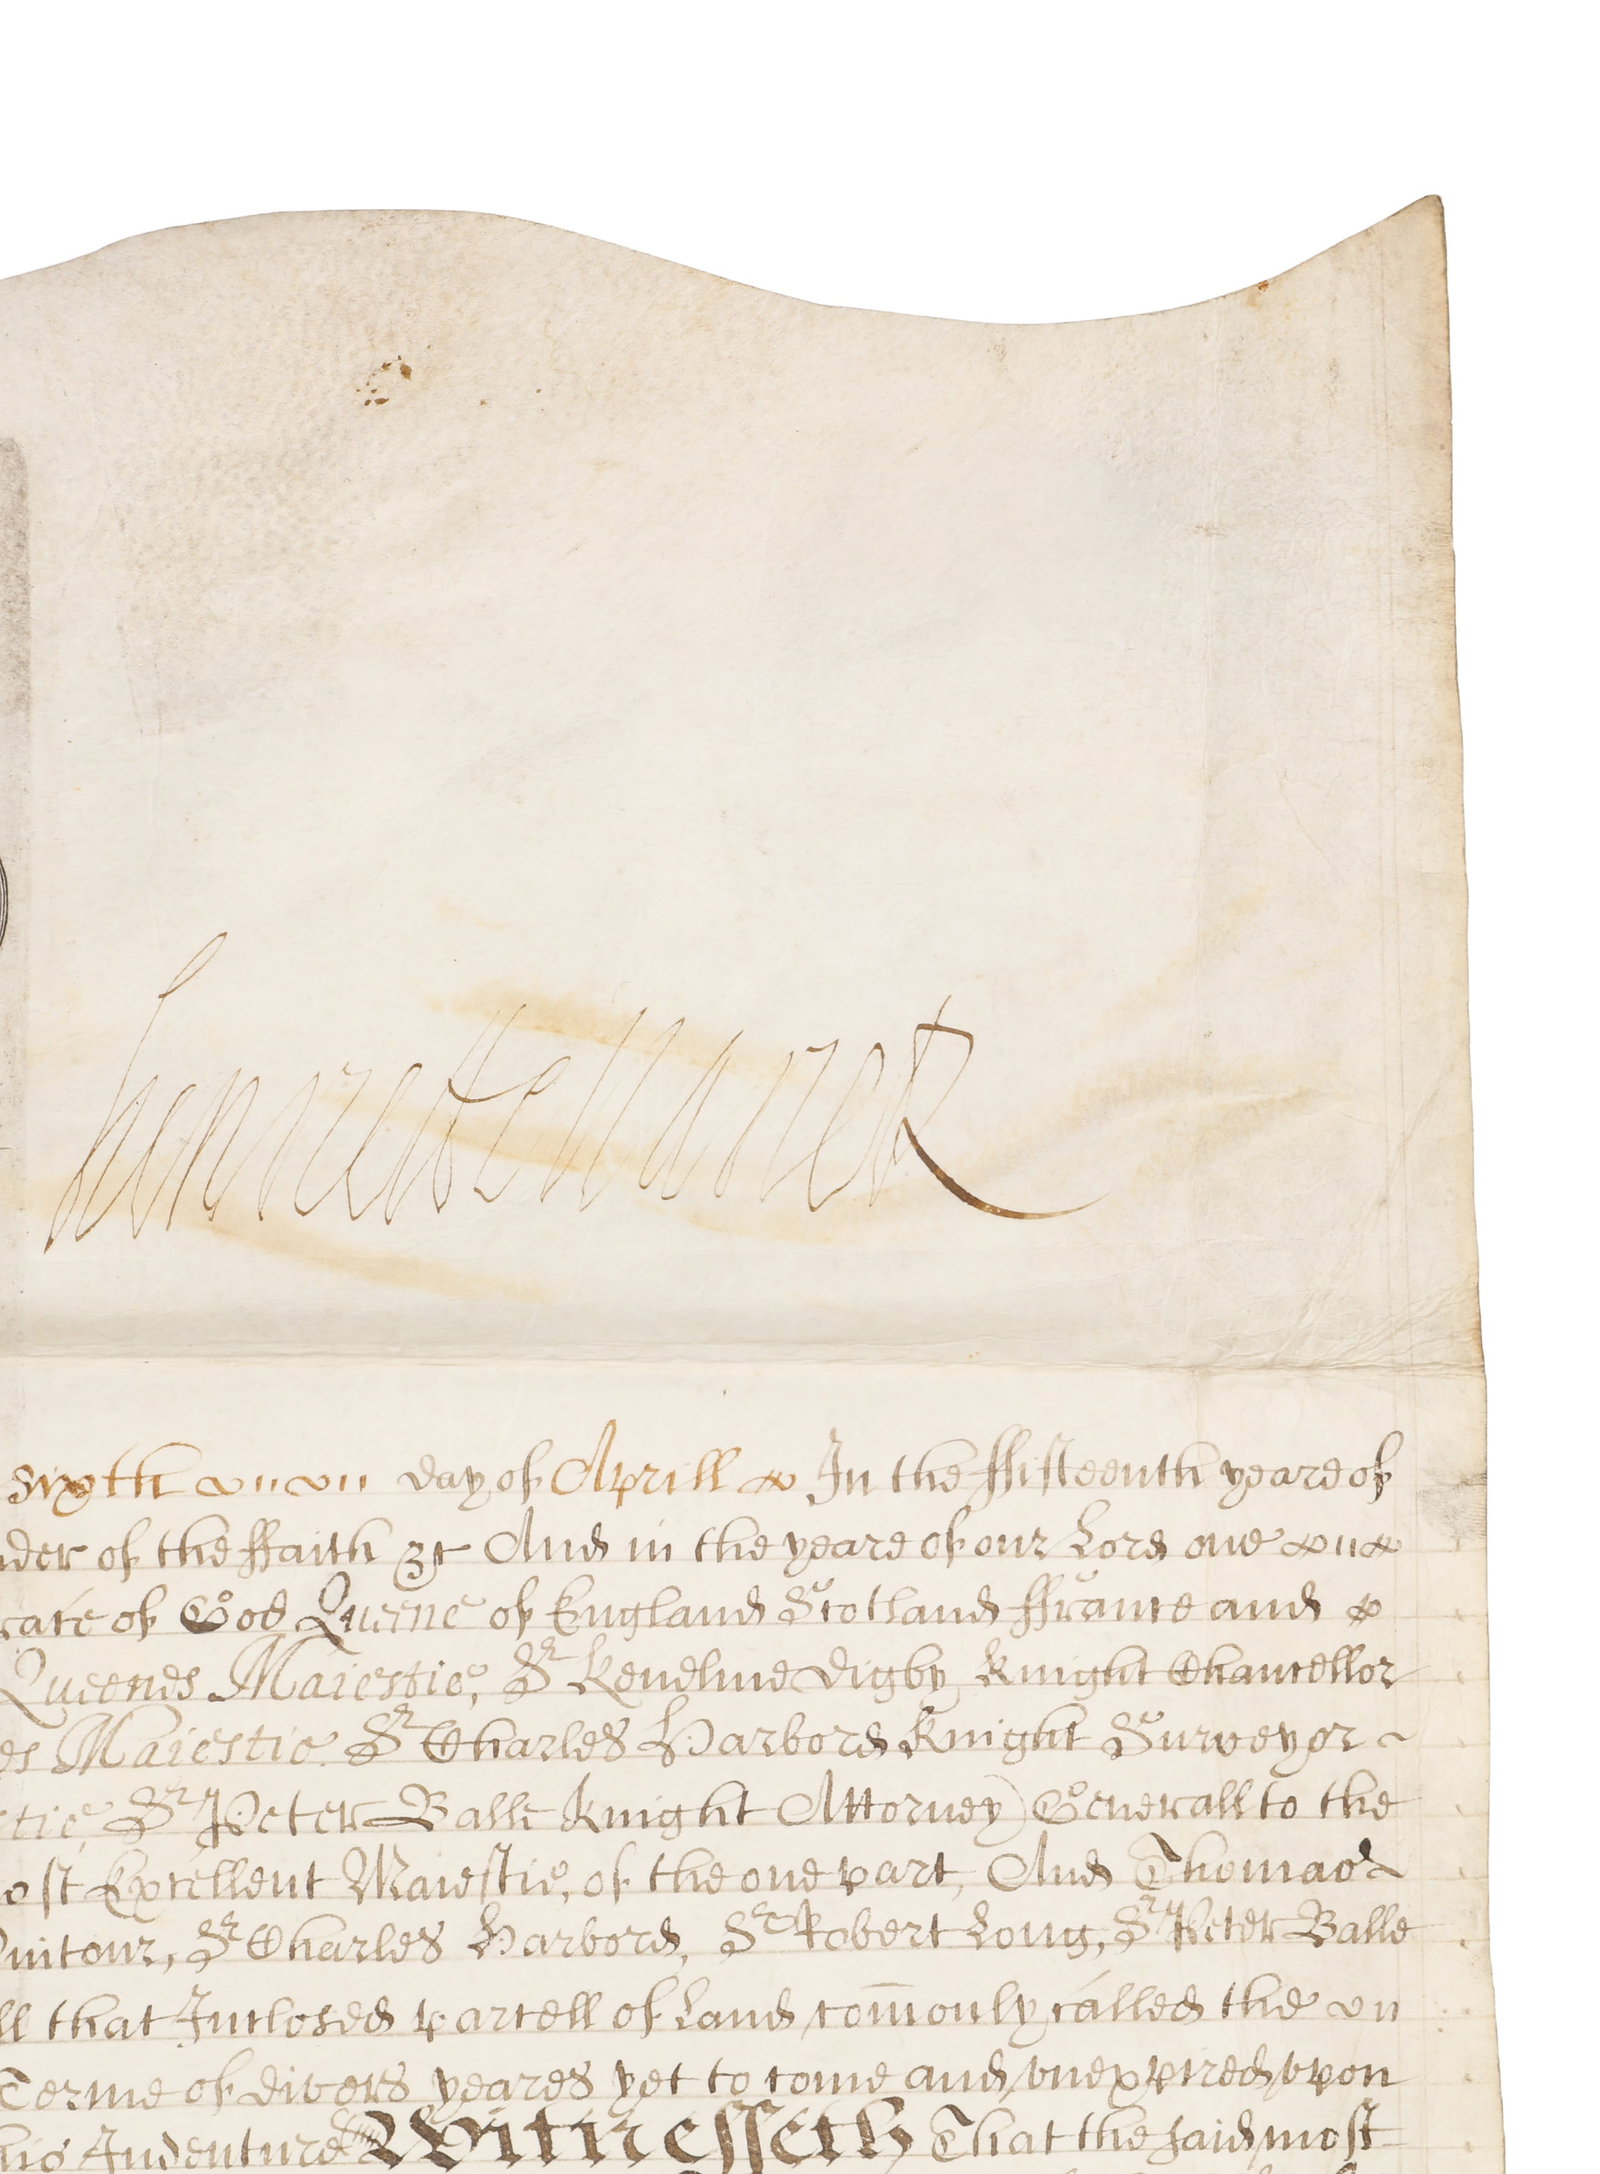 henriette Marie R
sixth day of Aprill In the ffifteenth yeare of
nder of the ffaith &c And in the yeare of our Lord one
of God Queene of England Scotland ffrance and
Queenes Maiestie, Sr Kenelme Digby Knight Chancellor
es Maiestie Sr Charles Harbord Knight Surveyor
stie, Sr Peter Balle Knight Attorney Generall to the
ost Excellent Maiestie, of the one part, And Thomas
uitour, Sr Charles Harbord, Sr Robert Long, Sr Peter Balle
ll that Inclosed parcell of Land com̄only called the
Terme of divers yeares yet to come and unexpired upon
his Indenture Witnesseth That the said most